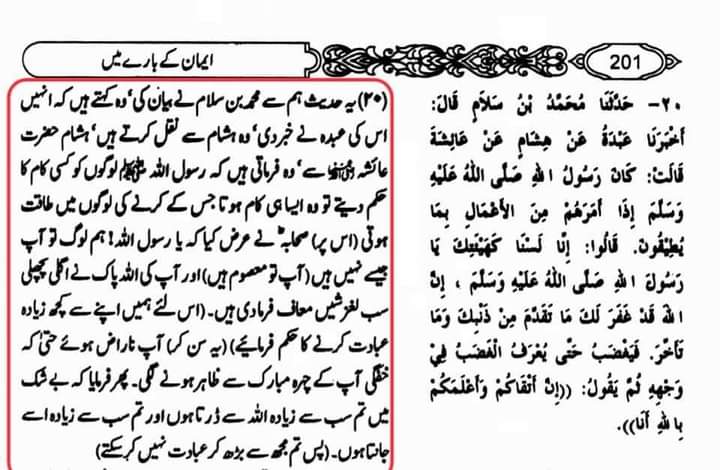 201
ایمان کے بارے میں
٢٠- حَدَّثَنَا مُحَمَّدُ بْنُ سَلَامٍ قَالَ:
أَخْبَرَنَا عَبْدَةُ عَنْ هِشَامٍ عَنْ عَائِشَةَ
قَالَتْ: كَانَ رَسُولُ اللهِ صَلَّى اللهُ عَلَيْهِ
وَسَلَّمَ إِذَا أَمَرَهُمْ مِنَ الأَعْمَالِ بِمَا
يُطِيقُونَ. قَالُوا: إِنَّا لَسْنَا كَهَيْئَتِكَ يَا
رَسُولَ اللهِ صَلَّى اللهُ عَلَيْهِ وَسَلَّمَ ، إِنَّ
اللهَ قَدْ غَفَرَ لَكَ مَا تَقَدَّمَ مِنْ ذَنْبِكَ وَمَا
تَأَخَّرَ. فَيَغْضَبُ حَتَّى يُعْرَفَ الْغَضَبُ فِيْ
وَجْهِهِ ثُمَّ يَقُولُ: ((إِنَّ أَتْقَاكُمْ وَأَعْلَمَكُمْ
بِاللهِ أَنَا)).
(۲۰) یہ حدیث ہم سے محمد بن سلام نے بیان کی' وہ کہتے ہیں کہ انہیں
اس کی عبدہ نے خبر دی' وہ ہشام سے نقل کرتے ہیں' ہشام حضرت
عائشہ رضی اللہ عنہا سے' وہ فرماتی ہیں کہ رسول اللہ صلی اللہ علیہ وسلم لوگوں کو کسی کام کا
حکم دیتے تو وہ ایسا ہی کام ہوتا جس کے کرنے کی لوگوں میں طاقت
ہوتی (اس پر) صحابہؓ نے عرض کیا کہ یا رسول اللہ! ہم لوگ تو آپ
جیسے نہیں ہیں (آپ تو معصوم ہیں) اور آپ کی اللہ پاک نے اگلی پچھلی
سب لغزشیں معاف فرما دی ہیں۔ (اس لئے ہمیں اپنے سے کچھ زیادہ
عبادت کرنے کا حکم فرمائیے) (یہ سن کر) آپ ناراض ہوئے حتیٰ کہ
خفگی آپ کے چہرہ مبارک سے ظاہر ہونے لگی۔ پھر فرمایا کہ بے شک
میں تم سب سے زیادہ اللہ سے ڈرتا ہوں اور تم سب سے زیادہ اسے
جانتا ہوں۔ (پس تم مجھ سے بڑھ کر عبادت نہیں کر سکتے)